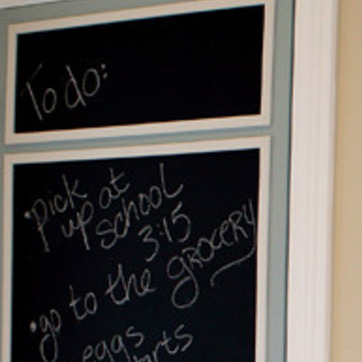 To do:
• Pick up at school 3:15
• go to the GROCERY
eggs